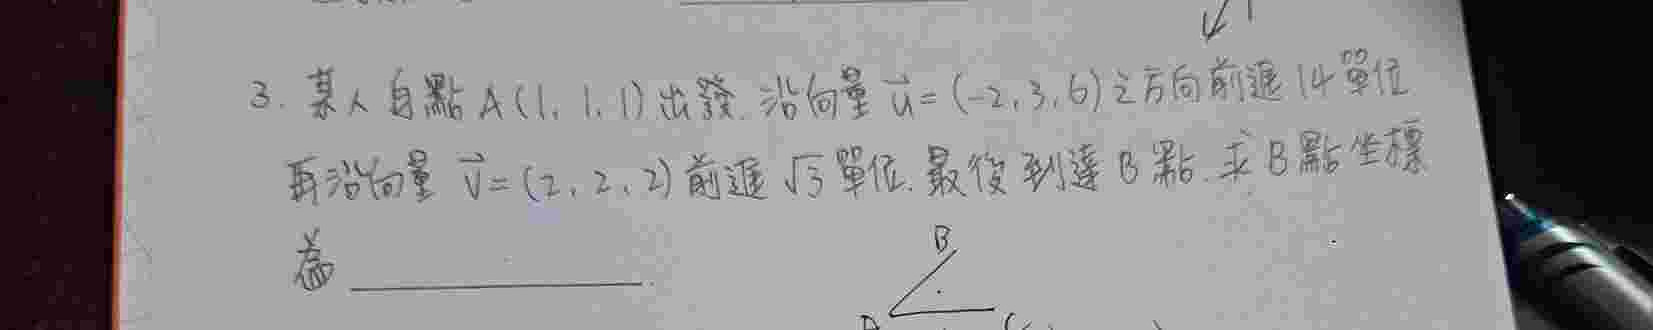 3. 某人自點A(1,1,1)出發.沿向量 u⃗=(-2,3,6)之方向前進14單位
再沿向量 v⃗=(2,2,2)前進√3單位.最後到達B點.求B點坐標
為 ________.
B